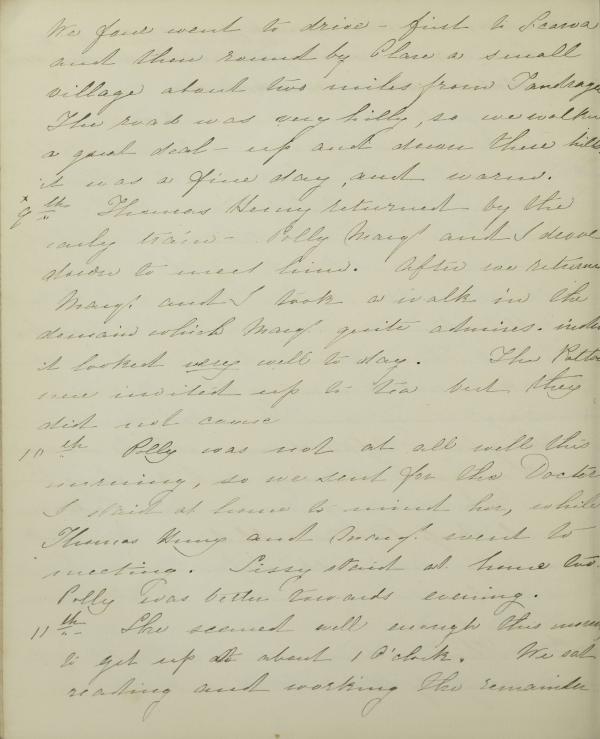 We four went to drive - first to Scarva
and then round by Clare a small
village about two miles from Tandrage
The road was very hilly, so we walke
a great deal - up and down these hills
it was a fine day, and warm.
x 9th Thomas Henry returned by the
early train - Polly Margt and I drove
down to meet him. After we returne
Margt and I took a walk in the
domain which Margt quite admires. inde
it looked very well to day. The
were invited up to tea but they
did not come
10th Polly was not at all well this
morning, so we sent for the Doctor
I staid at home to mind her, while
Thomas Henry and Margt went to
meeting. Sissy staid at home too.
Polly was better towards evening.
11th She seemed well enough this morn
to get up at about 1 O'clock. We sat
reading and working the remainder